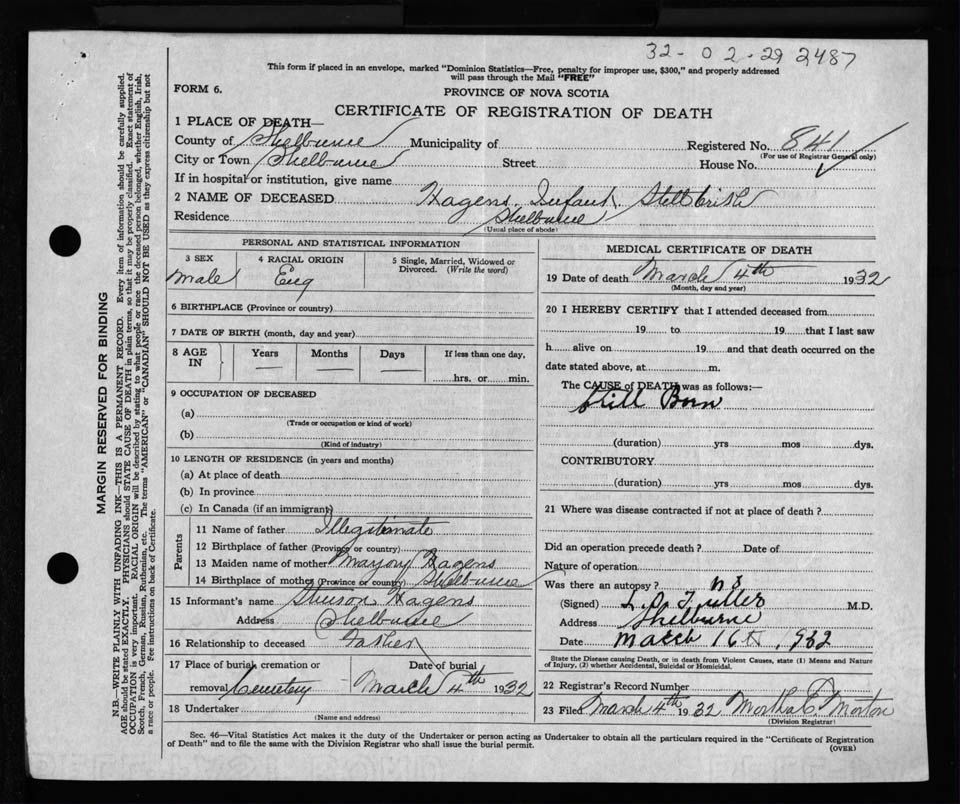 32-02-29 2487
This form if placed in an envelope, marked "Dominion Statistics—Free, penalty for improper use, $300," and properly addressed
will pass through the Mail "FREE"
FORM 6.
PROVINCE OF NOVA SCOTIA
CERTIFICATE OF REGISTRATION OF DEATH
1 PLACE OF DEATH—
County of Shelburne Municipality of Registered No. 841
(For use of Registrar General only)
City or Town Shelburne Street House No.
If in hospital or institution, give name
2 NAME OF DECEASED Hagens, Infant Stillbirth
Residence Shelburne
(Usual place of abode)
PERSONAL AND STATISTICAL INFORMATION
3 SEX 4 RACIAL ORIGIN 5 Single, Married, Widowed or
Divorced. (Write the word)
male Eng
6 BIRTHPLACE (Province or country)
7 DATE OF BIRTH (month, day and year)
8 AGE IN Years Months Days If less than one day,
hrs. or min.
9 OCCUPATION OF DECEASED
(a)
(Trade or occupation or kind of work)
(b)
(Kind of industry)
10 LENGTH OF RESIDENCE (in years and months)
(a) At place of death
(b) In province
(c) In Canada (if an immigrant)
Parents
11 Name of father Illegitimate
12 Birthplace of father (Province or country)
13 Maiden name of mother Marjory Hagens
14 Birthplace of mother (Province or country) Shelburne
15 Informant's name Hagens
Address Shelburne
16 Relationship to deceased
17 Place of burial, cremation or Date of burial
removal Cemetery March 4th 1932
18 Undertaker
(Name and address)
MEDICAL CERTIFICATE OF DEATH
19 Date of death March 4th 1932
(Month, day and year)
20 I HEREBY CERTIFY that I attended deceased from
19 to 19 that I last saw
h alive on 19 and that death occurred on the
date stated above, at m.
The CAUSE of DEATH was as follows:—
Still Born
(duration) yrs mos dys.
CONTRIBUTORY
(duration) yrs mos dys.
21 Where was disease contracted if not at place of death?
Did an operation precede death? Date of
Nature of operation
Was there an autopsy? no
(Signed) L. O. Fuller M.D.
Address Shelburne
Date March 16th, 1932
State the Disease causing Death, or in death from Violent Causes, state (1) Means and Nature
of Injury, (2) whether Accidental, Suicidal or Homicidal.
22 Registrar's Record Number
23 Filed March 4th 1932 Martha E. Morton
(Division Registrar)
Sec. 46—Vital Statistics Act makes it the duty of the Undertaker or person acting as Undertaker to obtain all the particulars required in the "Certificate of Registration
of Death" and to file the same with the Division Registrar who shall issue the burial permit.
(OVER)
MARGIN RESERVED FOR BINDING
N.B.—WRITE PLAINLY WITH UNFADING INK—THIS IS A PERMANENT RECORD. Every item of information should be carefully supplied.
AGE should be stated EXACTLY. PHYSICIANS should STATE CAUSE OF DEATH in plain terms, so that it may be properly classified. Exact statement of
OCCUPATION is very important. RACIAL ORIGIN will be described by stating to what people or race the deceased person belonged, whether English, Irish,
Scotch, French, German, Russian, Ruthenian, etc. The terms "AMERICAN" or "CANADIAN" SHOULD NOT BE USED as they express citizenship but not
a race or people. Fee instructions on back of Certificate.